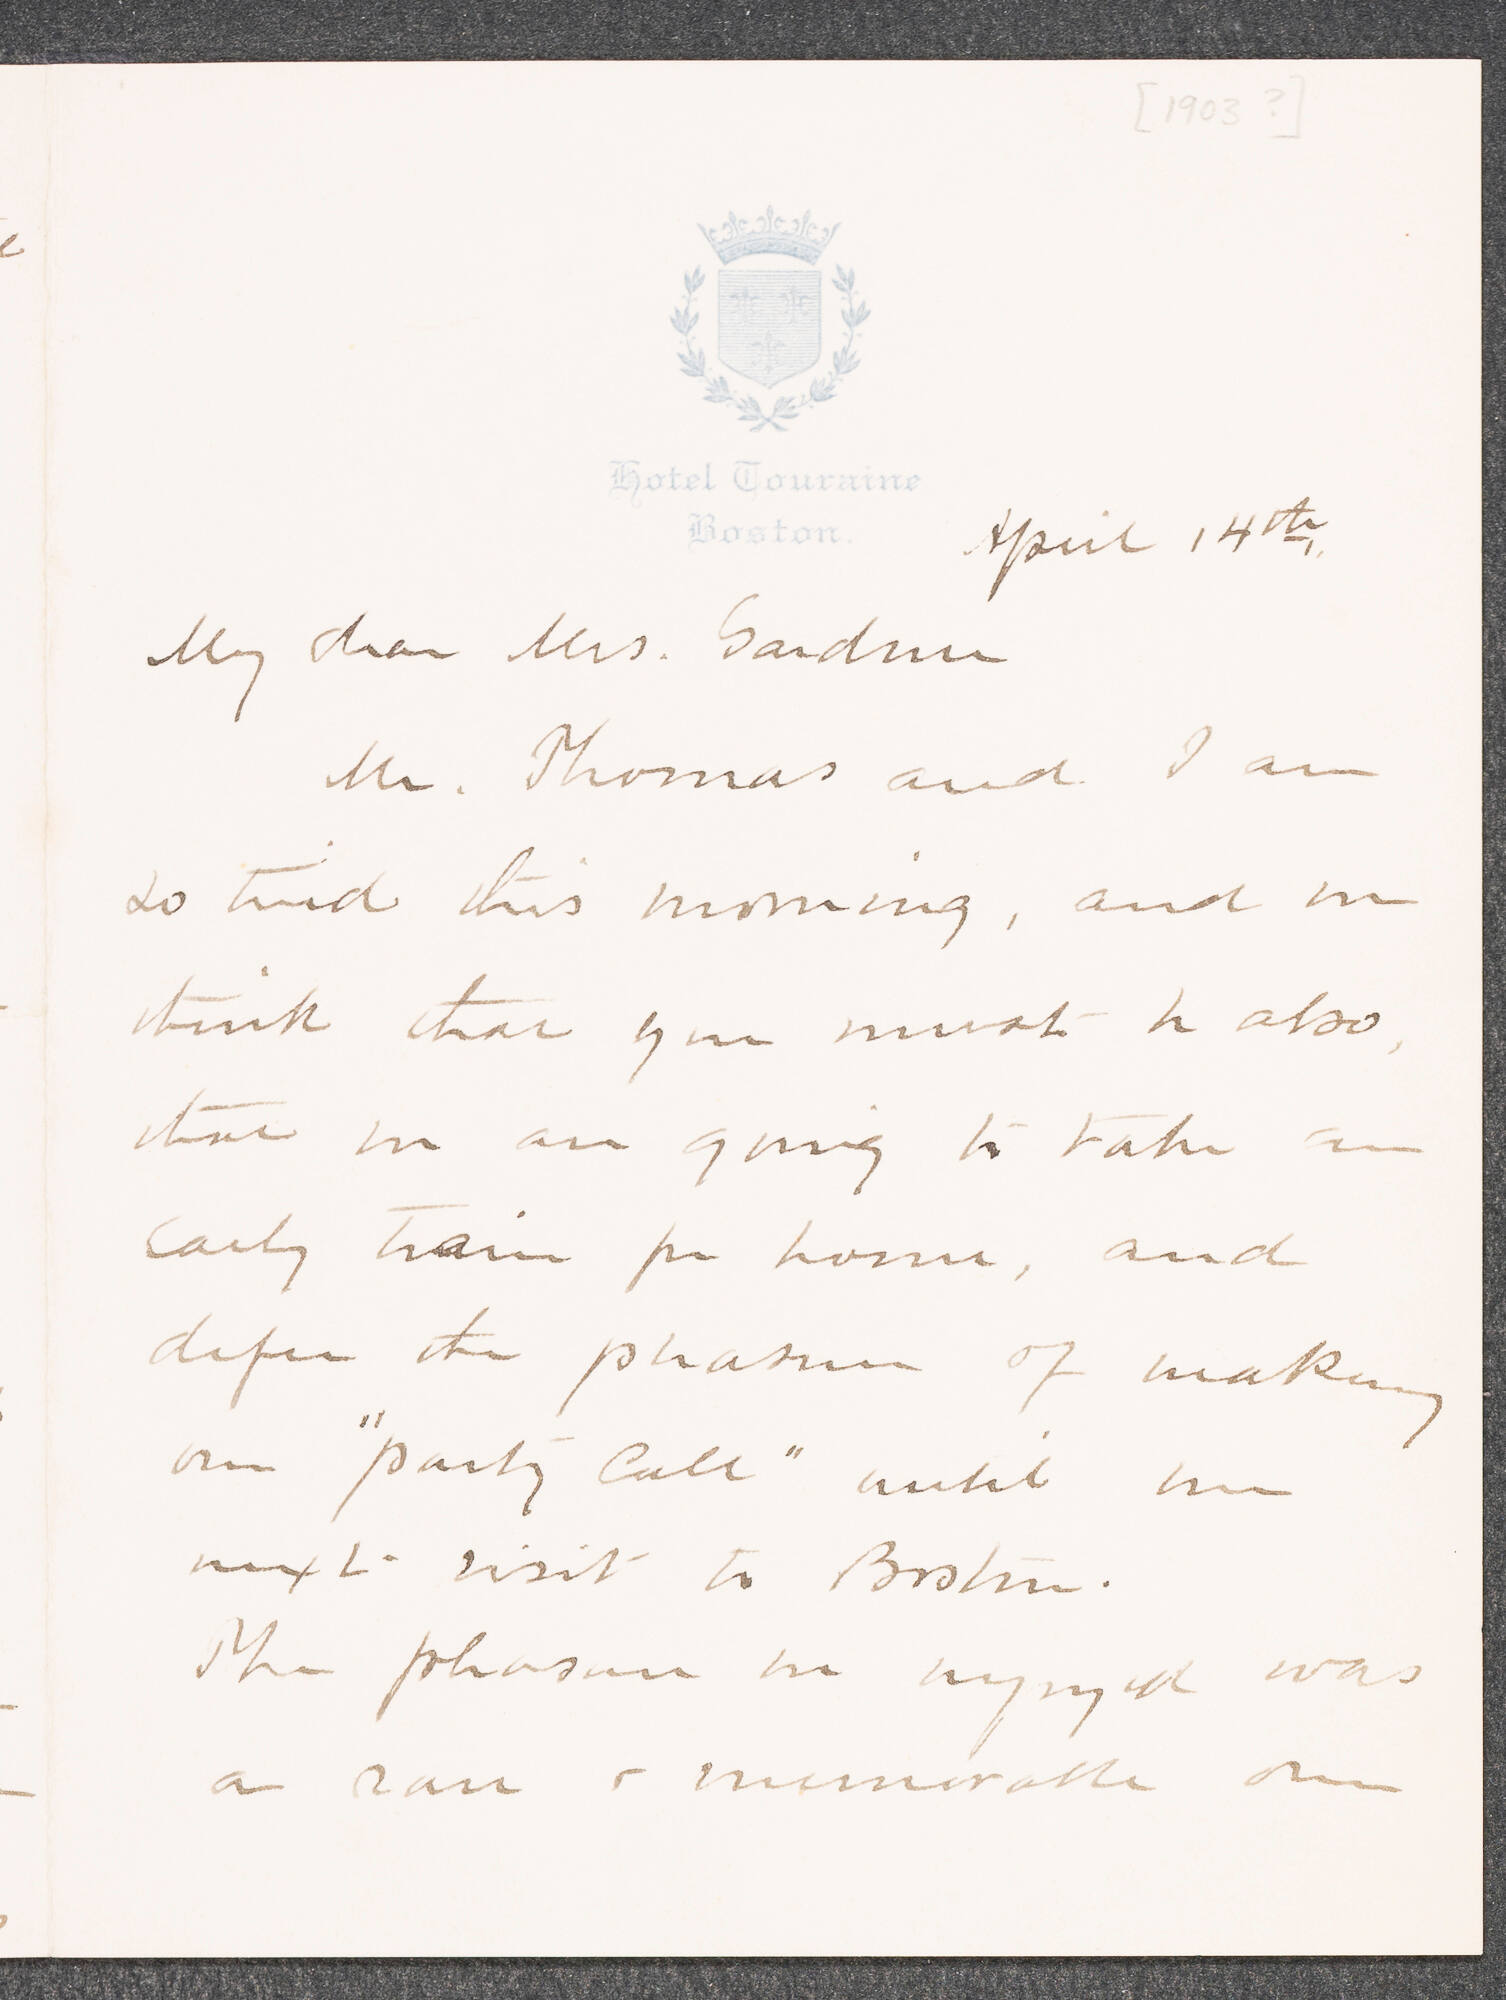 [1903 ?]
Hotel Touraine
Boston.
April 14th.
My dear Mrs. Gardner
Mr. Thomas and I are
so tired this morning, and we
think that you must be also,
that we are going to take an
early train for home, and
defer the pleasure of making
our "party call" until our
next visit to Boston.
The pleasure we enjoyed was
a rare & memorable one